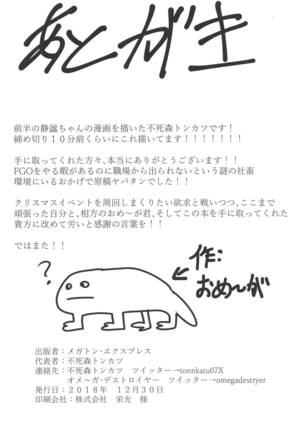 あとがき
前半の静謐ちゃんの漫画を描いた不死森トンカツです！
締め切り１０分前くらいにこれ描いてます！！！！！！！
手に取ってくれた方々、本当にありがとうございます！！
FGOをやる暇があるのに職場から出られないという謎の社畜
環境にいるおかげで原稿ヤバタンでした！！
クリスマスイベントを周回しまくりたい欲求と戦いつつ、ここまで
頑張った自分と、相方のおめ〜が君、そしてこの本を手に取ってくれた
貴方に改めて労いと感謝の言葉を！！
ではまた！！
?
作：
おめ〜が
出版者：メガトン・エクスプレス
代表者：不死森トンカツ
連絡先：不死森トンカツ　ツイッター→tonnkatu07X
オメ〜ガ・デストロイヤー　ツイッター→omegadestryer
発行日：２０１８年　１２月３０日
印刷会社：株式会社　栄光　様